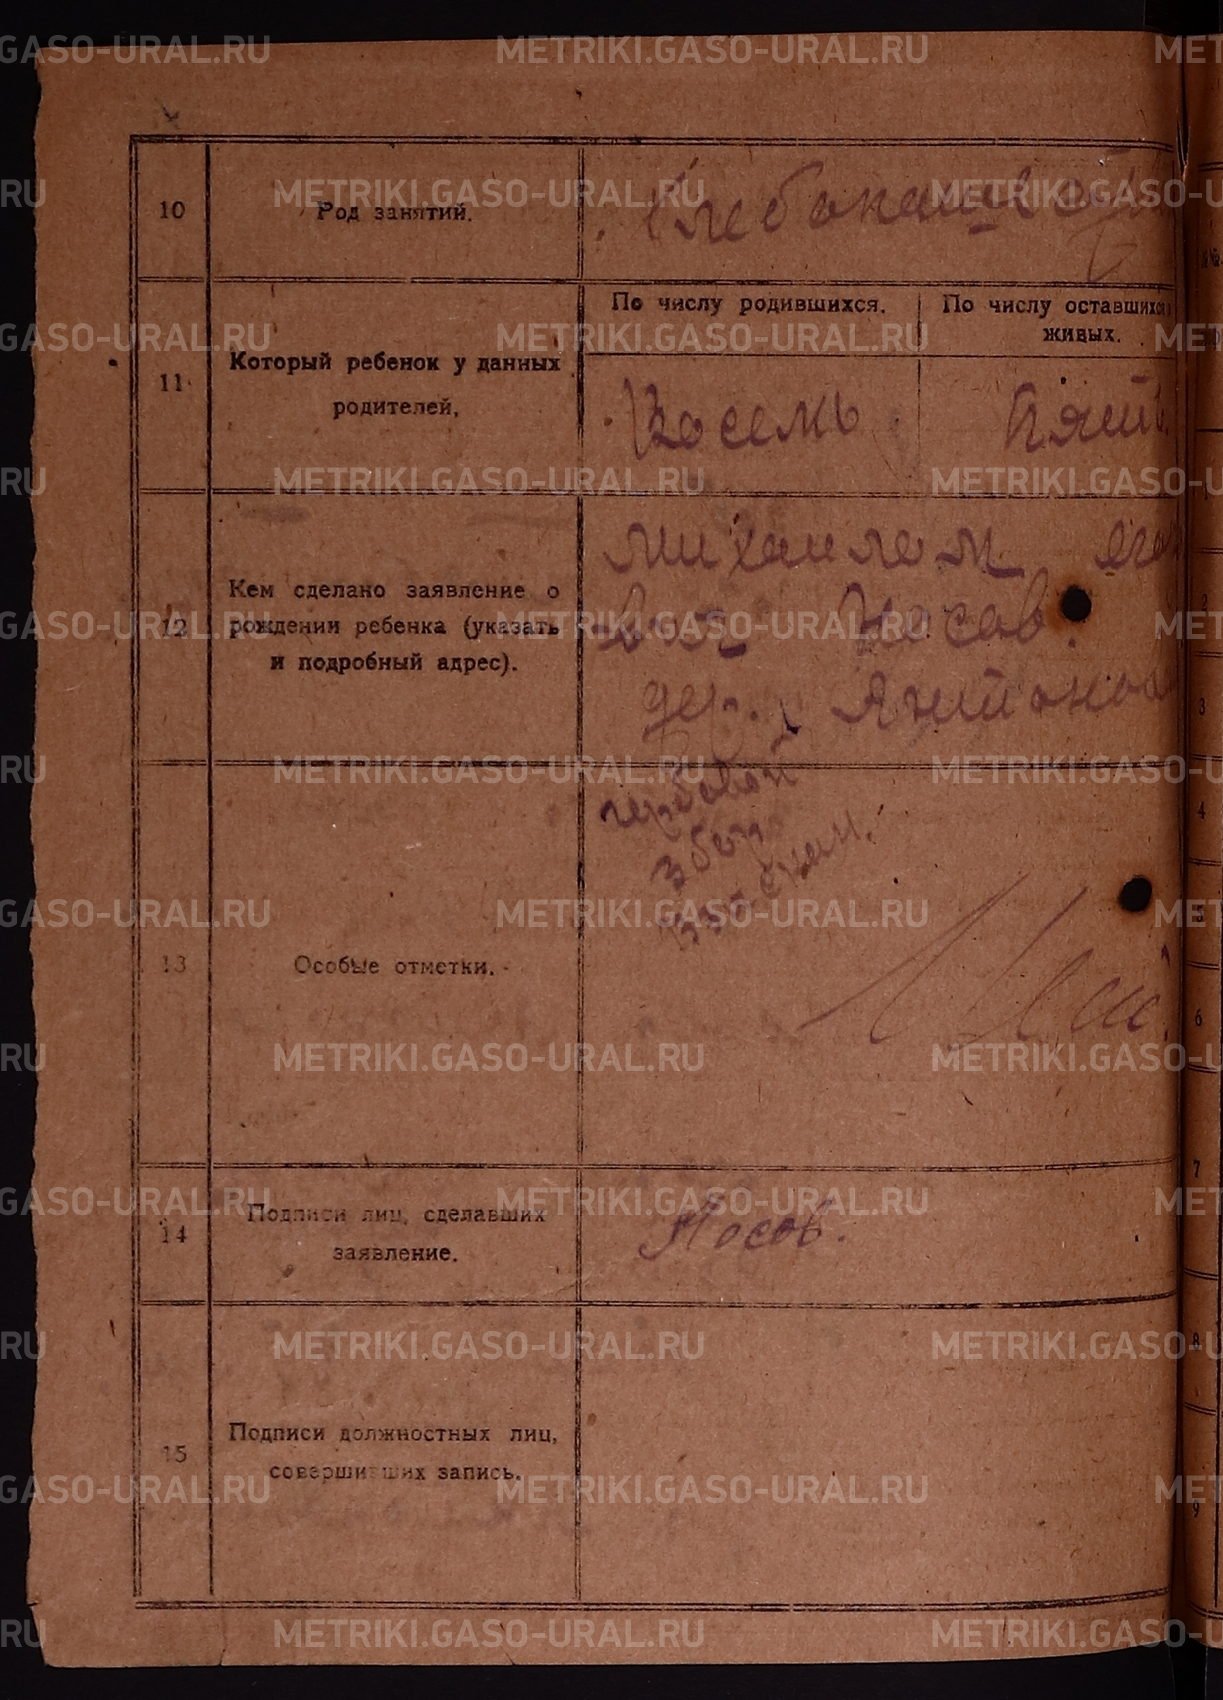 10
Род занятий.
Хлебопашество
11
Который ребенок у данных
родителей,
По числу родившихся.
По числу оставшихся
живых.
Восемь
Пять
12
Кем сделано заявление о
рождении ребенка (указать
и подробный адрес).
Михаилом Его
Носов.
дер. Антонов
13
Особые отметки.
гербовой
сбор
взыскан.
14
Подписи лиц, сделавших
заявление.
Носов.
15
Подписи должностных лиц,
совершивших запись.
3
4
5
6
7
8
9
METRIKI.GASO-URAL.RU